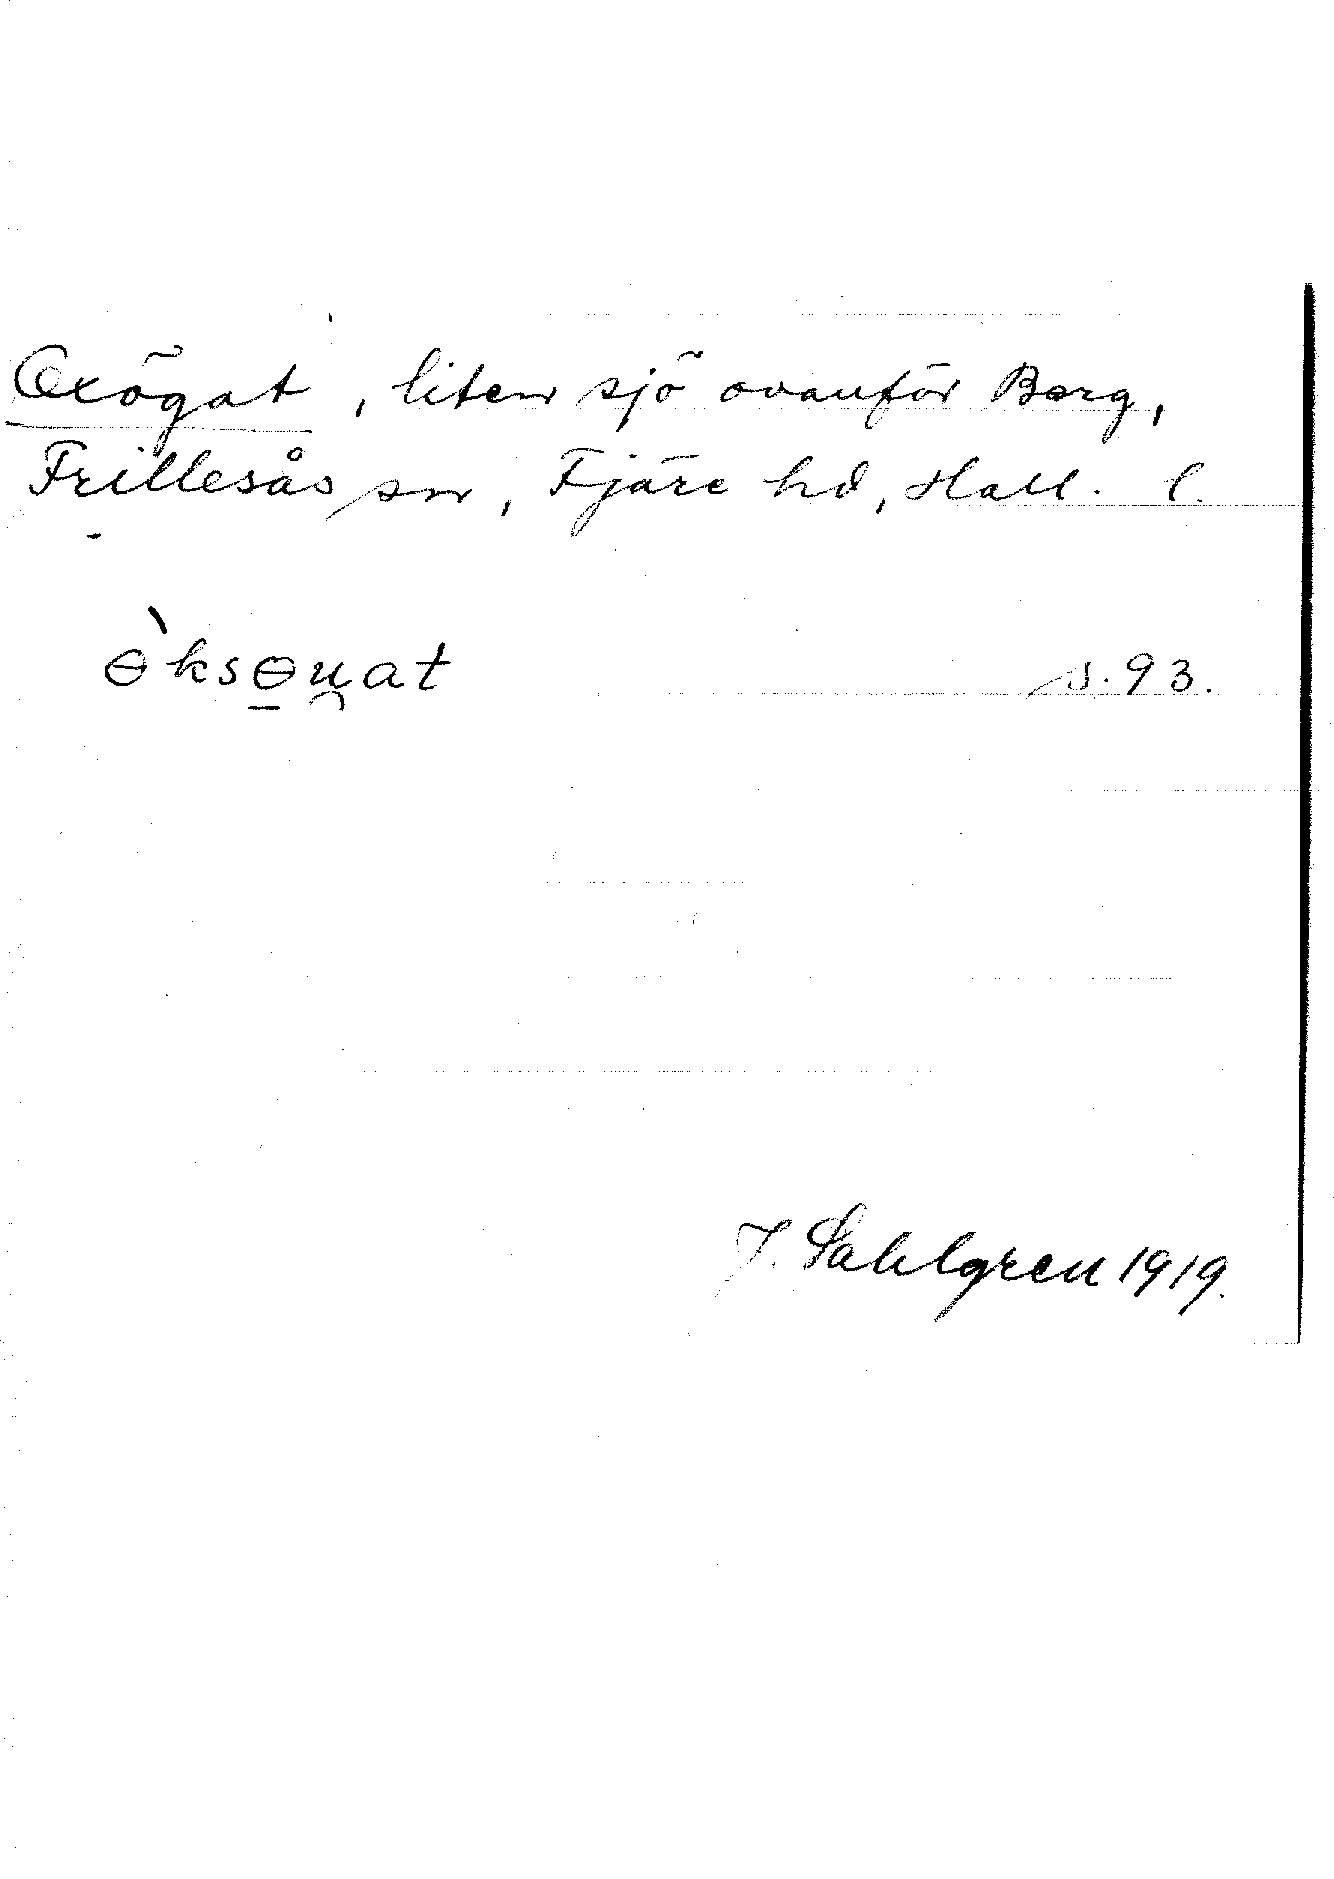 Oxögat, liten sjö ovanför Berg,
Frillesås sn, Fjäre hd, Hall. l.
ɵ̀ksɵ̱u̯at s. 93.
J. Sahlgren 1919.